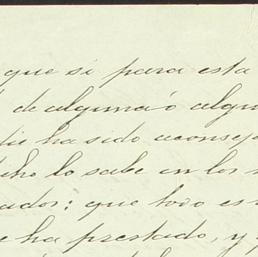 que si para esta
de alguna ó algun
die ha sido aconseja
cho lo sabe en los
ados: que todo es
e ha prestado, y